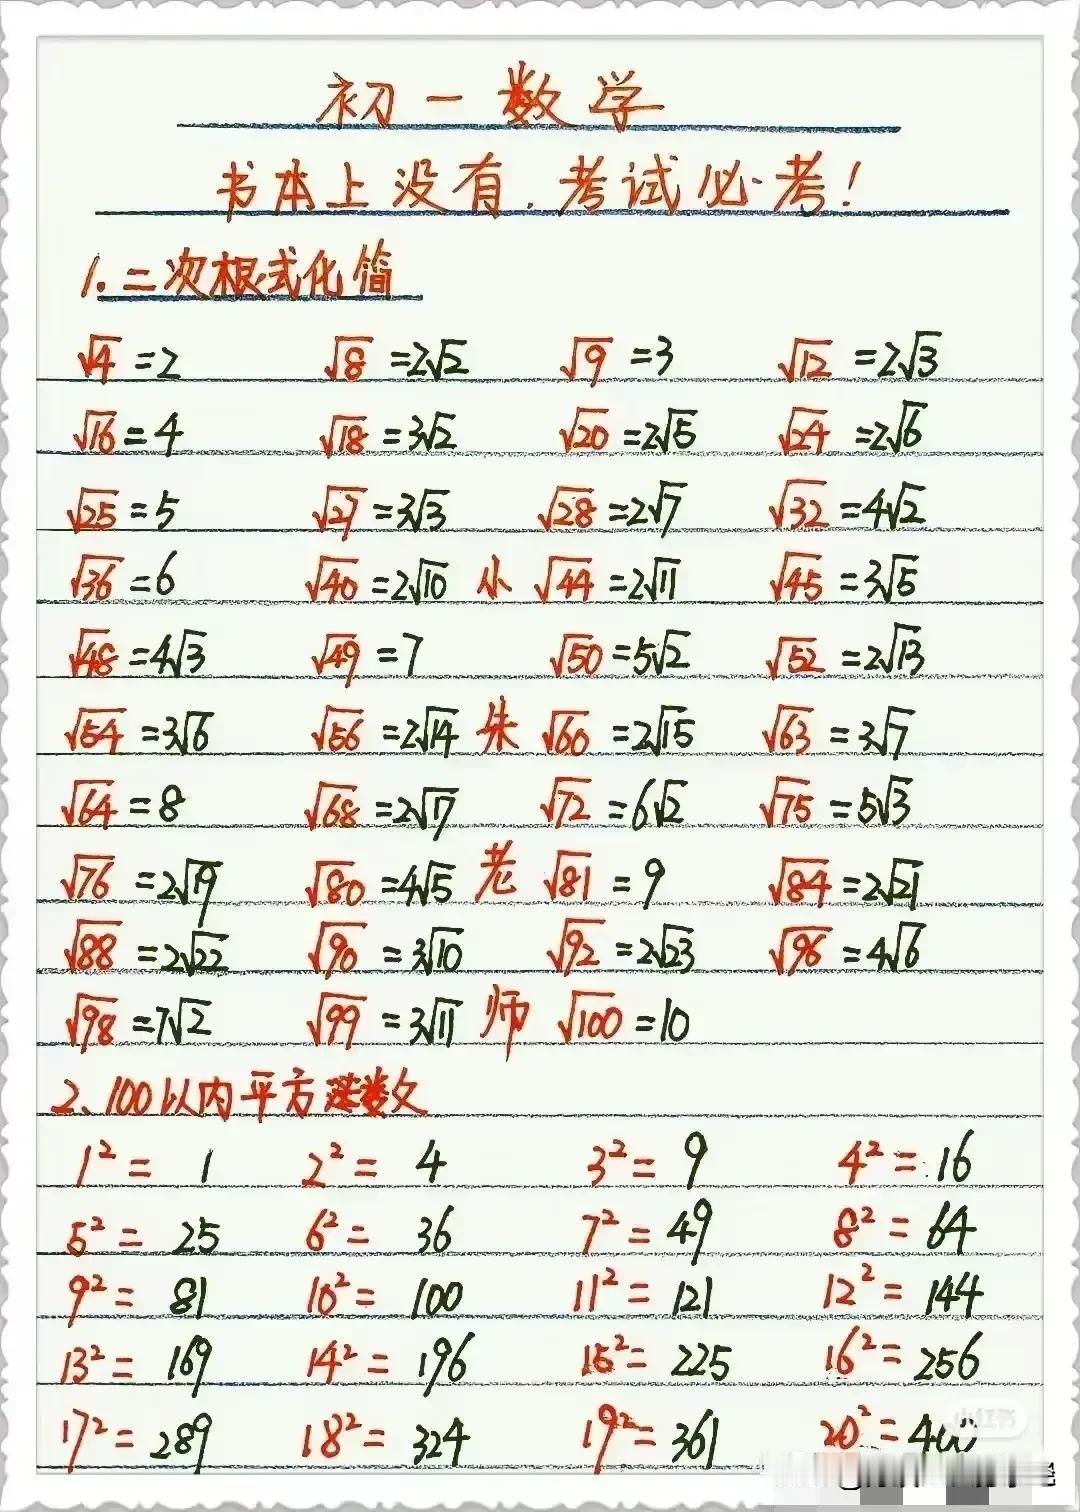 初一数学
书本上没有,考试必考!
1.二次根式化简
√4=2 √8=2√2 √9=3 √12=2√3
√16=4 √18=3√2 √20=2√5 √24=2√6
√25=5 √27=3√3 √28=2√7 √32=4√2
√36=6 √40=2√10 小 √44=2√11 √45=3√5
√48=4√3 √49=7 √50=5√2 √52=2√13
√54=3√6 √56=2√14 朱 √60=2√15 √63=3√7
√64=8 √68=2√17 √72=6√2 √75=5√3
√76=2√19 √80=4√5 老 √81=9 √84=2√21
√88=2√22 √90=3√10 √92=2√23 √96=4√6
√98=7√2 √99=3√11 师 √100=10
2、100以内平方数
1²=1 2²=4 3²=9 4²=16
5²=25 6²=36 7²=49 8²=64
9²=81 10²=100 11²=121 12²=144
13²=169 14²=196 15²=225 16²=256
17²=289 18²=324 19²=361 20²=400
小红书